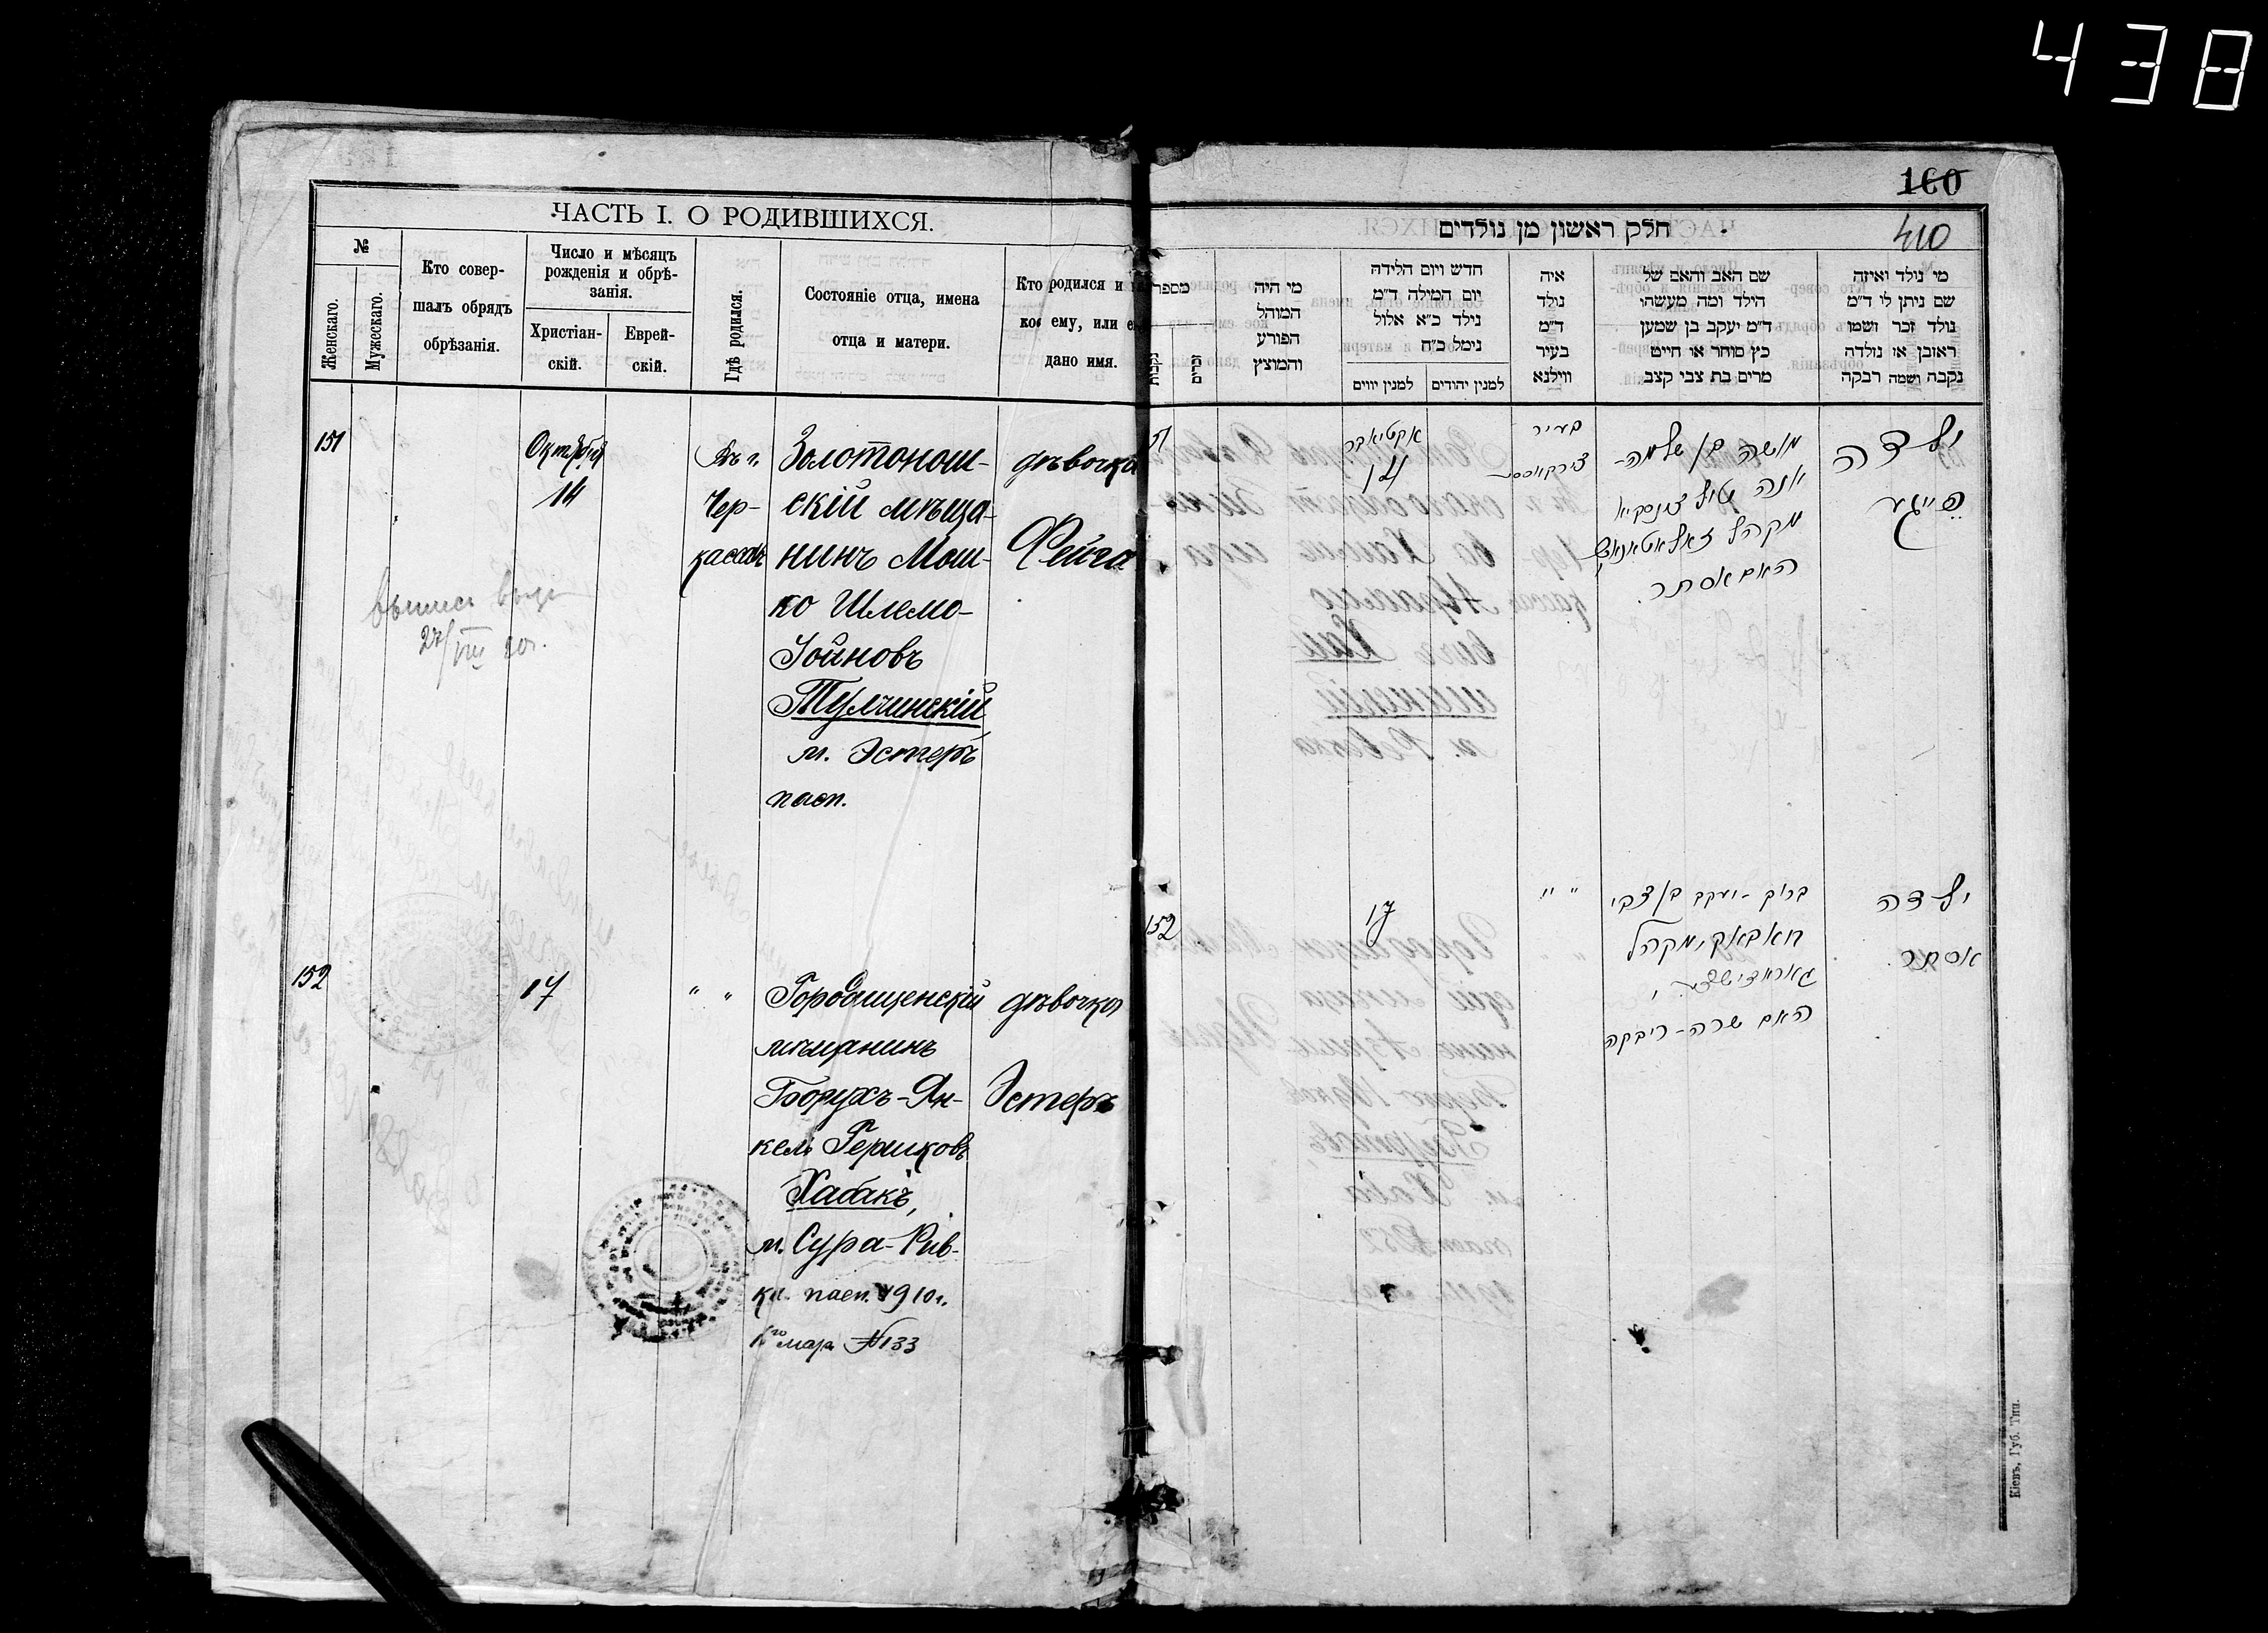 438
160
410
ЧАСТЬ I. О РОДИВШИХСЯ.
№
Женскаго.
Мужескаго.
Кто совер-
шалъ обрядъ
обрѣзанія.
Число и мѣсяцъ
рожденія и обрѣ-
занія.
Христіан-
скій.
Еврей-
скій.
Гдѣ родился.
Состояніе отца, имена
отца и матери.
Кто родился и
кое ему, или
дано имя.
151
Октября
14
Въ г.
Чер-
кассахъ
Золотонош-
скій мѣща-
нинъ Мош-
ко Шлемо-
Іойновъ
Тульчинскій
м. Эстеръ
пасп.
дѣвочка
Фейга
27/VIII 20 г.
152
17
" "
Городищенскій
мѣщанинъ
Борухъ-Ян-
кель Гершковъ
Хабакъ,
м. Сура-Рив-
ка пасп. 1910 г.
мар. №133
дѣвочка
Эстеръ
חלק ראשון מן נולדים
מספר
נקבות
זכרים
מי היה
המוהל
הפורע
והמוצץ
חדש ויום הלידה
יום המילה ד"מ
נילד כ"א אלול
נימל כ"ח
למנין יווים
למנין יהודים
איה
נולד
ד"מ
בעיר
ווילנא
שם האב והאם של
הילד ומה מעשהו
ד"מ יעקב בן שמעון
כץ סוחר או חייט
מרים בת צבי קצב
מי נולד ואיזה
שם ניתן לו ד"מ
נולד זכר ושמו
ראובן או נולדה
נקבה ושמה רבקה
51
אקטיאבר
14
בעיר
צירקאסס
משה בן שלמה-
מקהל זאלאטאנאש
האם אסתר.
ילדה
פייגע
152
17
" "
ברוך-יעקב בן צבי
חאבאק, מקהל
גאראדישטשע,
האם שרה-ריבקה
ילדה
אסתר.
Кіевъ, Губ. Тип.